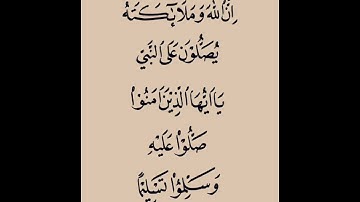 اِنَّ اللّٰهَ وَمَلَآئِكَتَهُ
يُصَلُّوْنَ عَلَى النَّبِيِّ
يَا اَيُّهَا الَّذِيْنَ اٰمَنُوْا
صَلُّوْا عَلَيْهِ
وَسَلِّمُوْا تَسْلِيْمًا